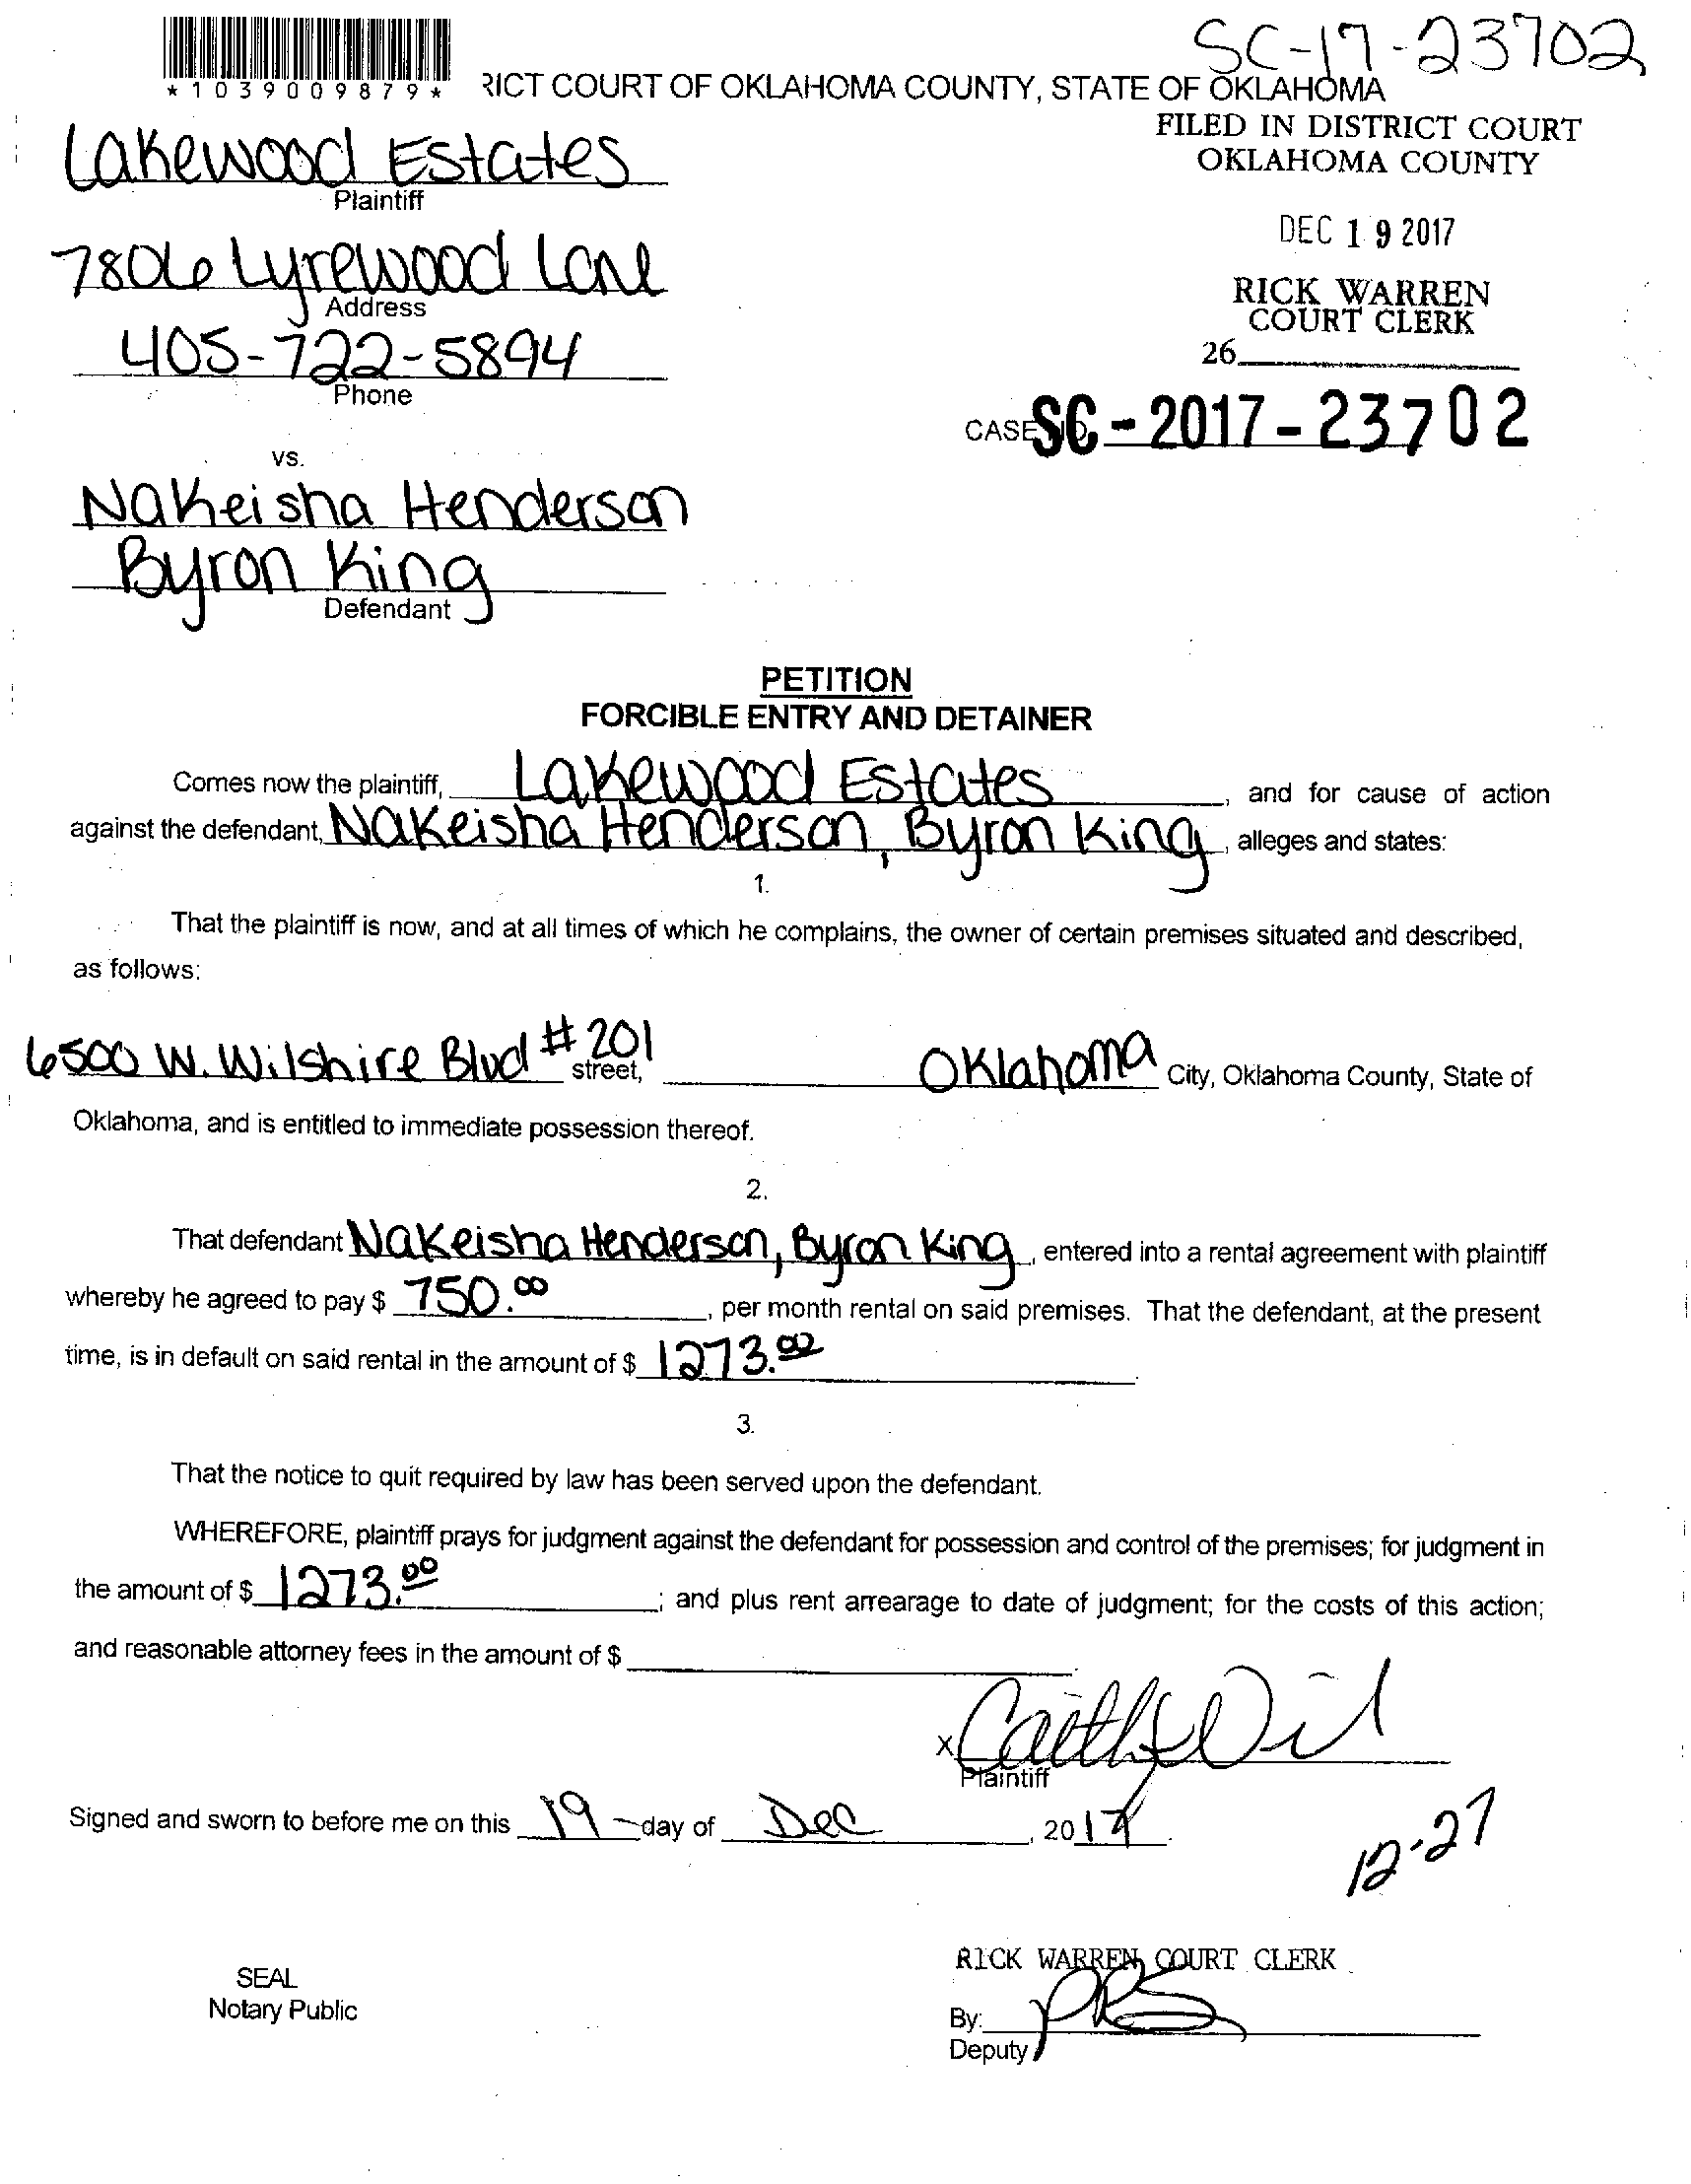 SC-17-23702
*1039009879*
RICT COURT OF OKLAHOMA COUNTY, STATE OF OKLAHOMA
FILED IN DISTRICT COURT
OKLAHOMA COUNTY
Lakewood Estates
Plaintiff
DEC 19 2017
7806 Lyrewood Lane
Address
RICK WARREN
COURT CLERK
405-722-5894
Phone
26
CASE NO. SC-2017-23702
vs.
Nakeisha Henderson
Byron King
Defendant
PETITION
FORCIBLE ENTRY AND DETAINER
Comes now the plaintiff, Lakewood Estates, and for cause of action
against the defendant, Nakeisha Henderson, Byron King, alleges and states:
1.
That the plaintiff is now, and at all times of which he complains, the owner of certain premises situated and described,
as follows:
6500 W. Wilshire Blvd #201 street, Oklahoma City, Oklahoma County, State of
Oklahoma, and is entitled to immediate possession thereof.
2.
That defendant Nakeisha Henderson, Byron King, entered into a rental agreement with plaintiff
whereby he agreed to pay $ 750.00, per month rental on said premises. That the defendant, at the present
time, is in default on said rental in the amount of $ 1273.00.
3.
That the notice to quit required by law has been served upon the defendant.
WHEREFORE, plaintiff prays for judgment against the defendant for possession and control of the premises; for judgment in
the amount of $ 1273.00; and plus rent arrearage to date of judgment; for the costs of this action;
and reasonable attorney fees in the amount of $
X
Plaintiff
Signed and sworn to before me on this 19 day of Dec, 2017.
12-27
RICK WARREN, COURT CLERK
SEAL
Notary Public
By:
Deputy